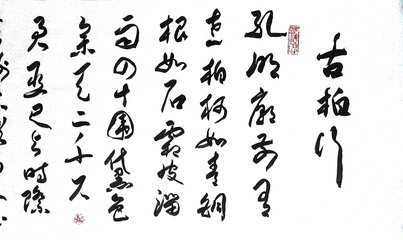 古柏行
孔明廟前有
老柏柯如青銅
根如石霜皮溜
雨四十圍黛色
參天二千尺
君臣已與時際